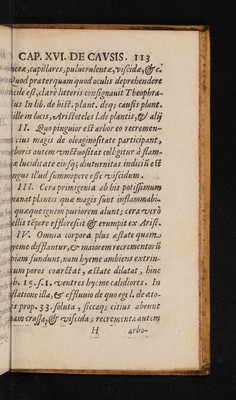 CAP. XVI. DE CAVSIS. 113
ceæ, capillares, puluerulentæ, viscidæ, & c.
Quod præterquam quod oculis deprehendere
cile est, clarè litteris consignauit Theophra-
us In lib. de hist. plant. deq; causis plant.
ille in locis, Aristoteles l. de plantis, & alij
II. Quo pinguior est arbor eo recremen-
cius magis de oleaginositate participant,
arboris autem vnctuositas colligitur à flam-
æ luciditate eiusq; diuturnitas indiciũ est
ngue illud summopere esse viscidum.
III. Cera primigenia ab his potissimum
manat plantis quæ magis sunt inflammabi-
quæque ignem puriorem alunt; cera verò
ellis tẽpore efflorescit & erumpit ex Arist.
IV. Omnia corpora plus æstate quam
yeme difflantur, & maiorem recrementorũ
piam fundunt, nam hyeme ambiens extrin-
um pores coarctat, æstate dilatat, hinc
b. 15. s. 1. ventres hyeme calidiores. In
flatione illa, & effluuio de quo egi l. de ato-
s prop. 33. soluta, siccaq; citius abeunt
am crassa, & viscida; recrementa autem
H arbo-